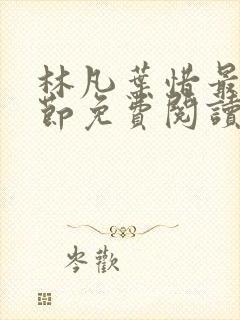 林凡葉惜最
節免費閱讀
岑歡